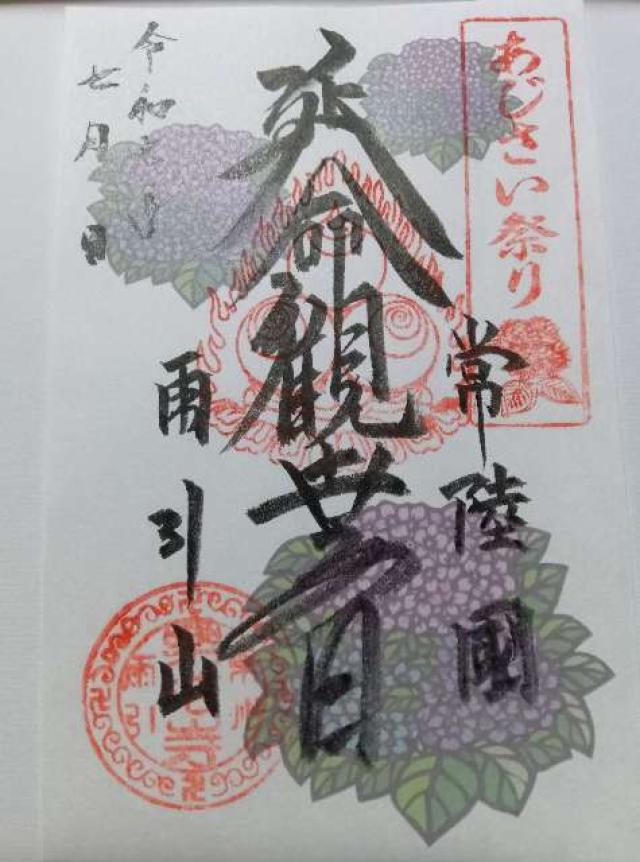 あじさい祭り
常陸國
延命観世音
雨引山
令和
七月 日